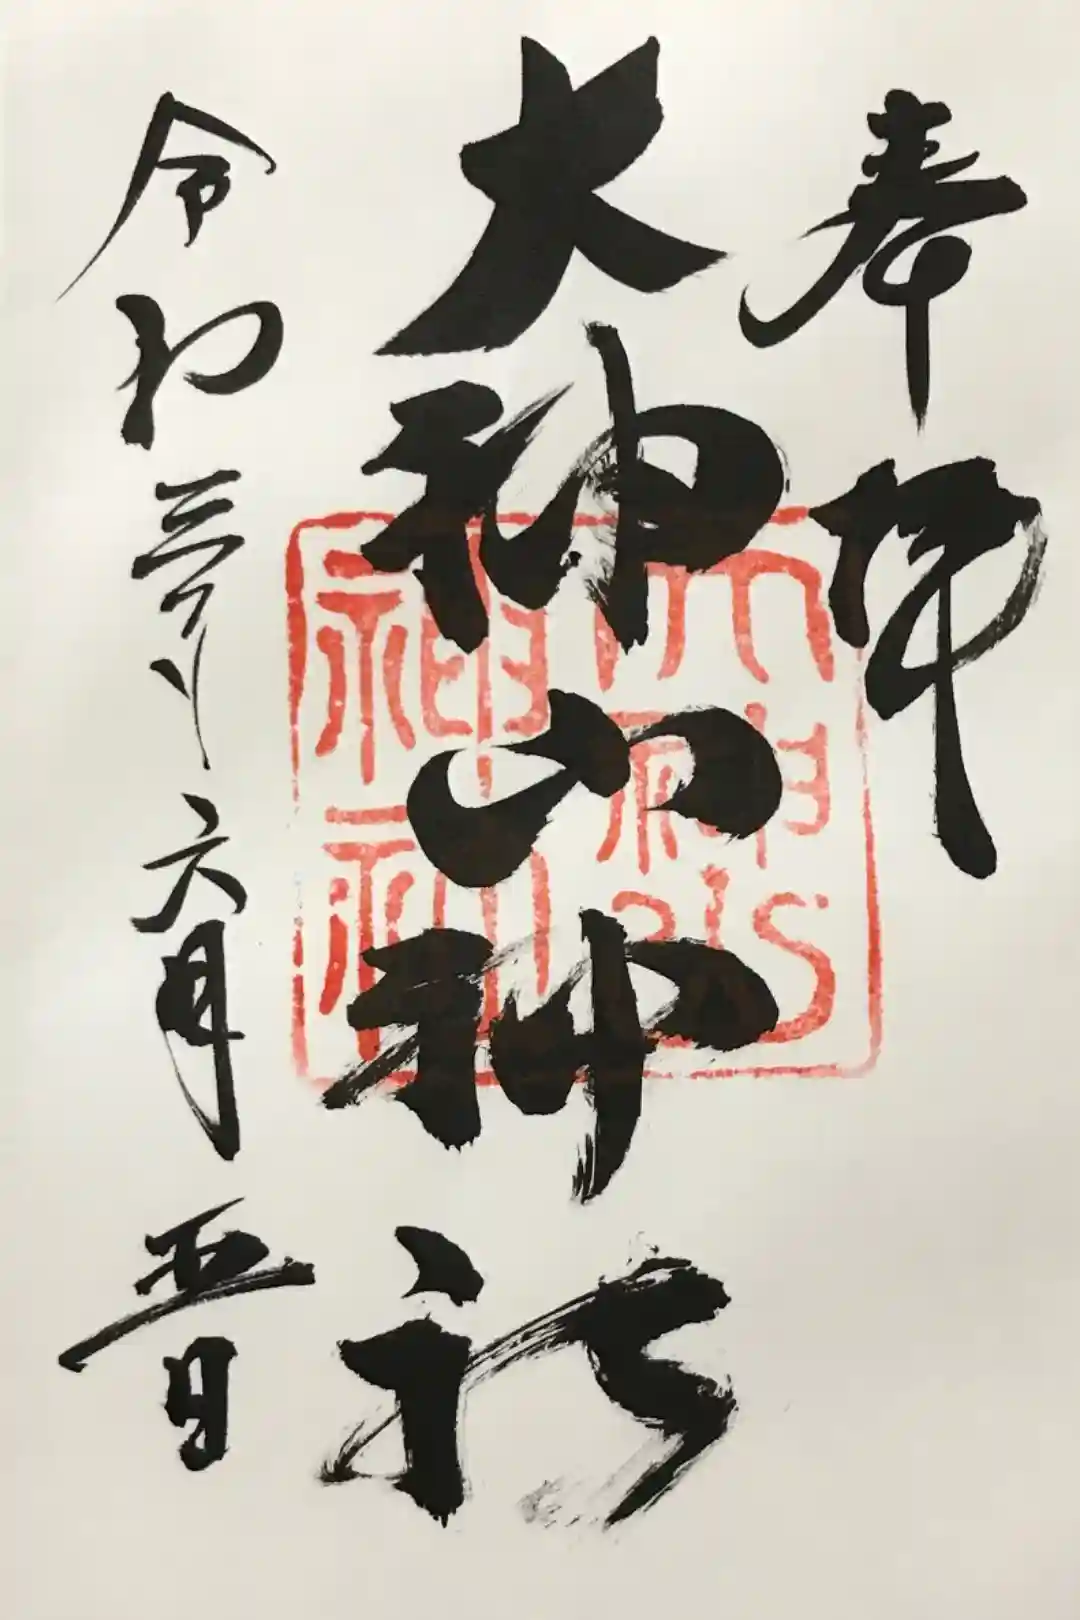 奉拝
大神山神社
大神山
神社
令和三年六月五日